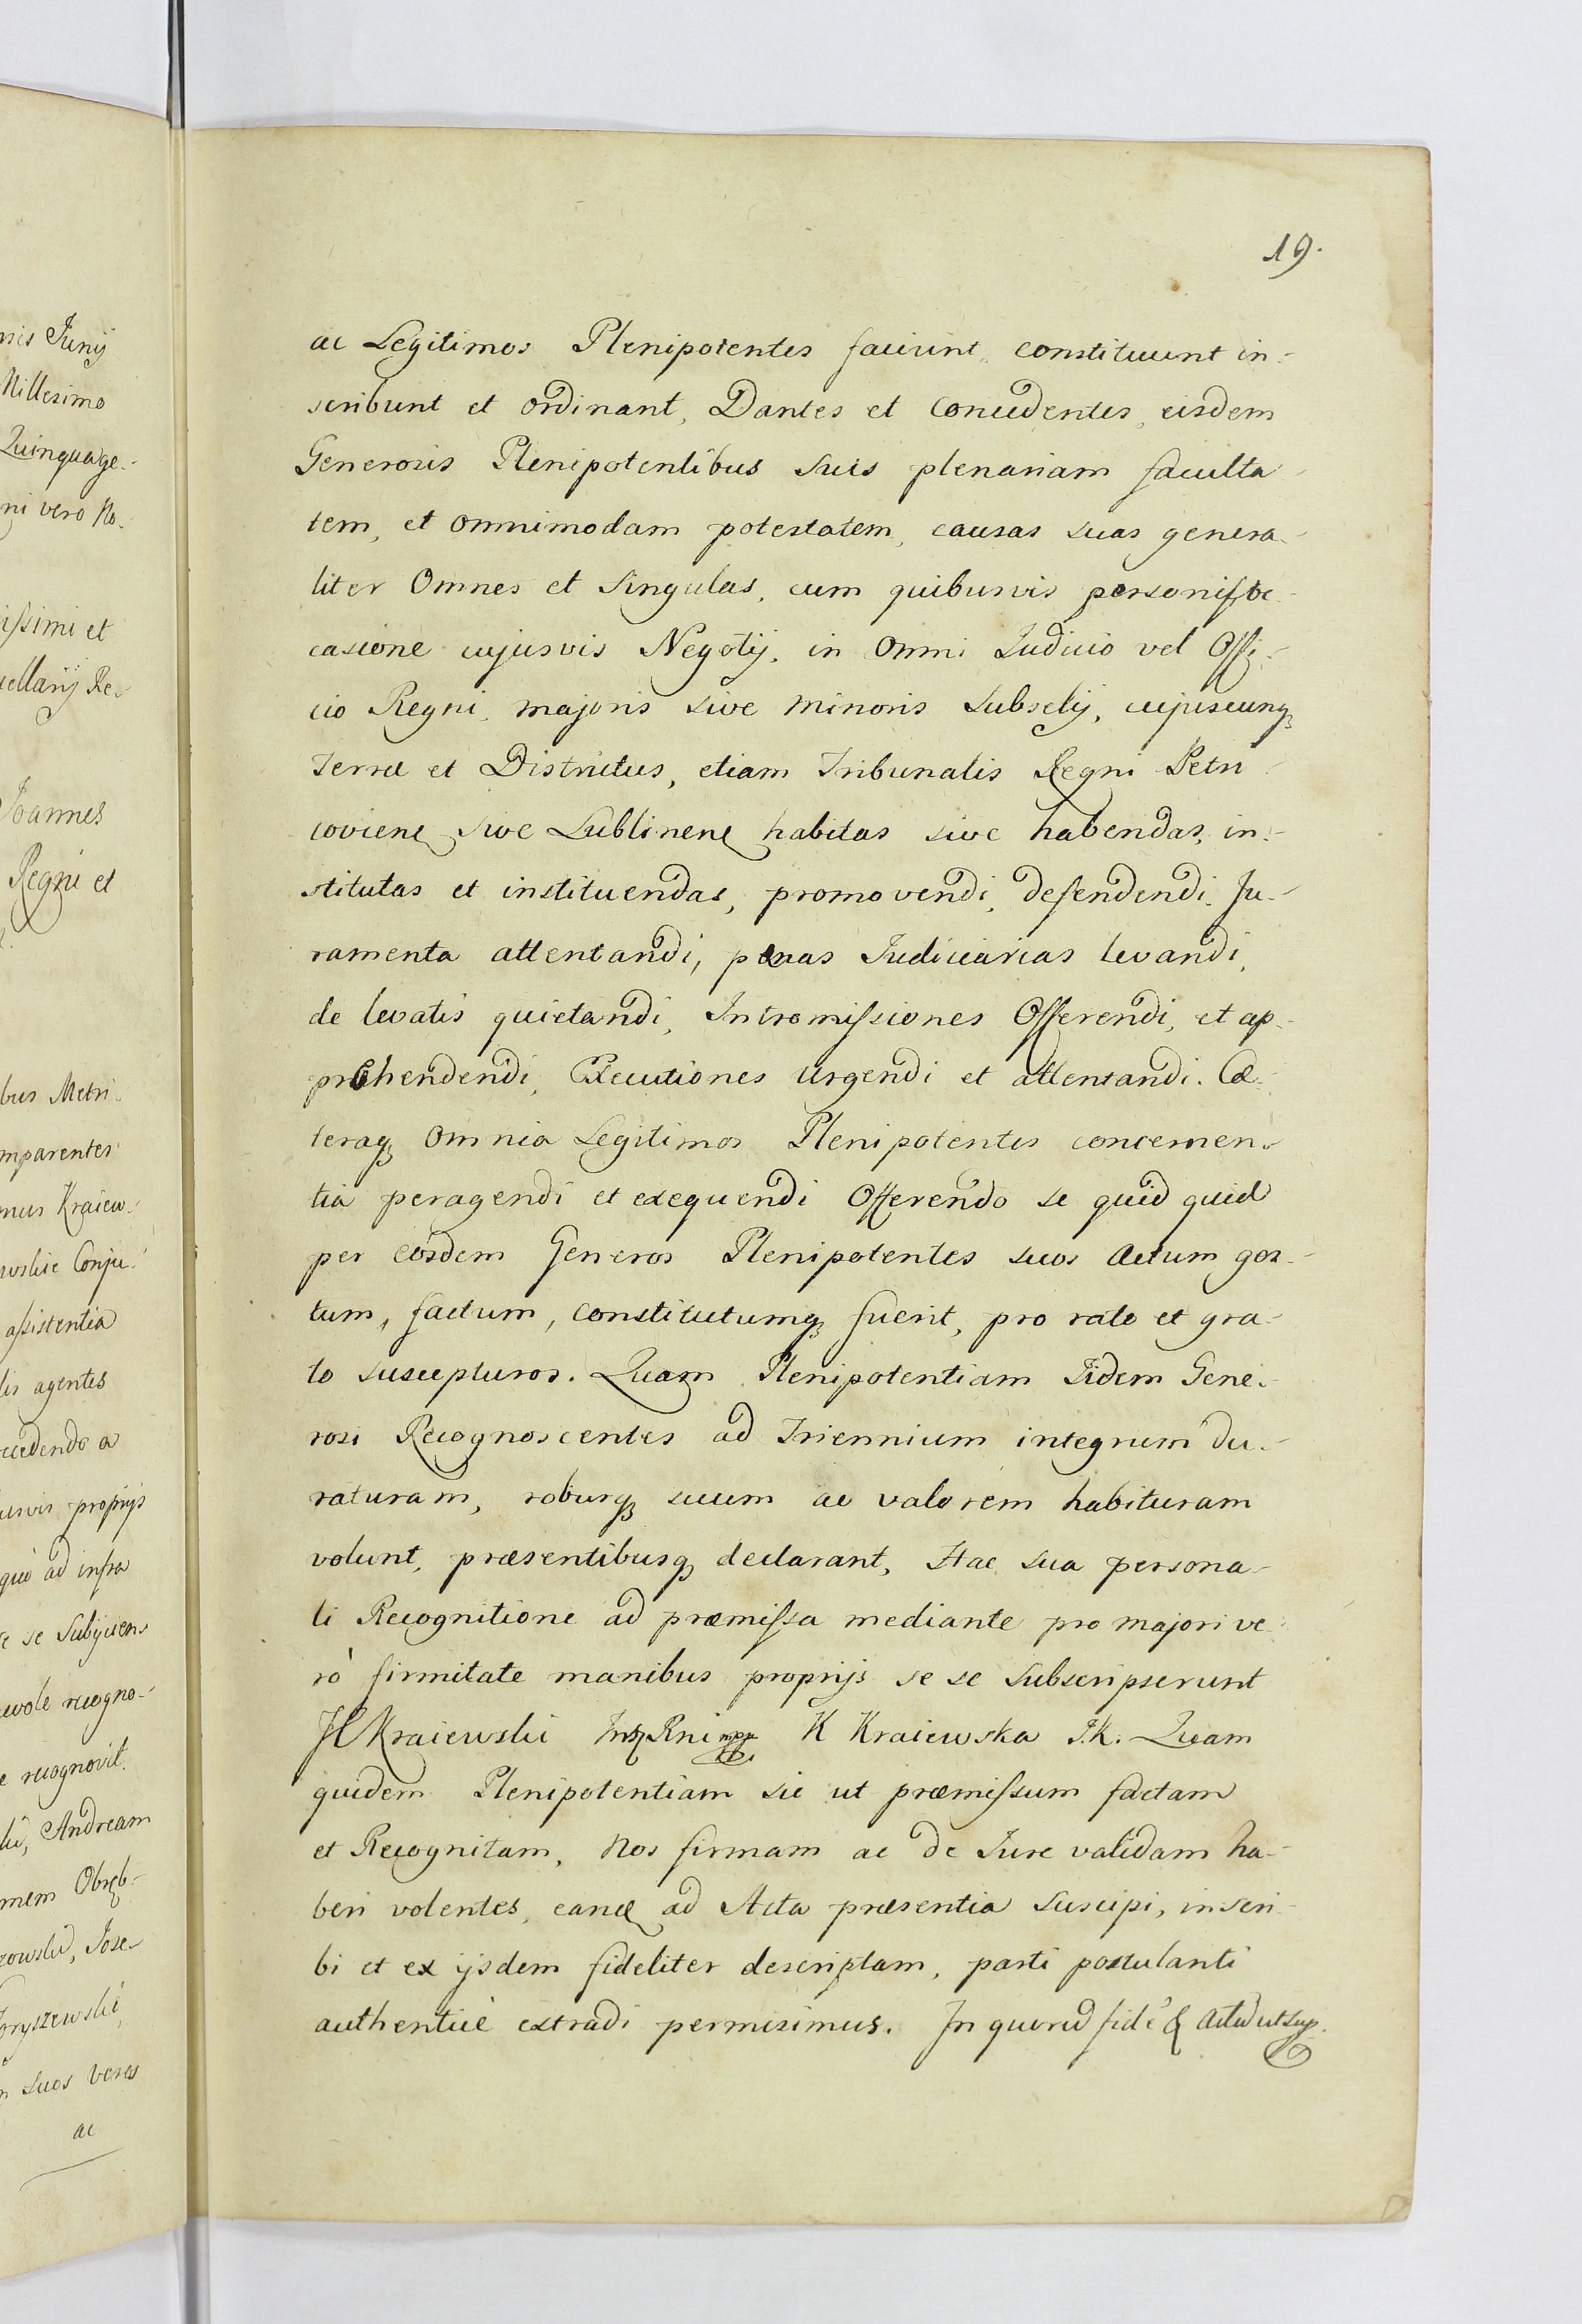 nsis Junij
Millesimo
Quinquage-
ni vero No-
issimi et
cellarij Re-
Joannes
Regni et
bus Metri-
mparentes
mus Kraiew-
wskie Conju-
assistentia
lis agentes
cedendo a
usvis proprijs
quo ad infra
e se Subijcien-
evole recogno-
e recognovit.
Andream
mem Obręb-
zowski, Jose-
Gryszewski,
suos veros
ac
19.
ac Legitimos Plenipotentes faciunt, constituunt in-
scribunt et ordinant, Dantes et Concedentes, eisdem
Generosis Plenipotentibus Suis plenariam faculta-
tem, et omnimodam potestatem, causas suas genera-
liter Omnes et Singulas, cum quibusvis personis, oc-
casione cujusvis Negotij, in Omni Judicio vel Offi-
cio Regni, majoris sive minoris Subselij, cujuscunq3
Terræ et Districtus, etiam Tribunalis Regni Petri-
coviene sive Lublinene habitas sive habendas, in-
stitutas et instituendas, promovendi, defendendi, Ju-
ramenta attentandi, pænas Judiciarias levandi,
de levatis quietandi, Intromissiones Offerendi, et ap-
prehendendi, Executiones urgendi et attentandi. Cæ-
teraq3 omnia Legitimos Plenipotentes concernen-
tia peragendi et exequendi Offerendo se quid quid
per eosdem Generos Plenipotentes suos actum ges-
tum, factum, constitutumq3 fuerit, pro rato et gra-
to suscepturos. Quam Plenipotentiam Iidem Gene-
rosi Recognoscentes ad Triennium integrum du-
raturam, roburq3 suum ac valorem habituram
volunt, præsentibusq3 declarant, Hac sua persona-
li Recognitione ad præmissa mediante pro majori ve-
rò firmitate manibus proprijs se se subscripserunt
JKraiewski Rni mpp K Kraiewska J.K. Quam
quidem Plenipotentiam sic ut præmissum factam
et Recognitam, Nos firmam ac de Jure validam ha-
beri volentes, eande ad Acta præsentia Suscipi, inscri-
bi et ex ijsdem fideliter descriptam, parti postulanti
authenticè extradi permisimus. In quorũ fidẽ & Actũ ut sup.